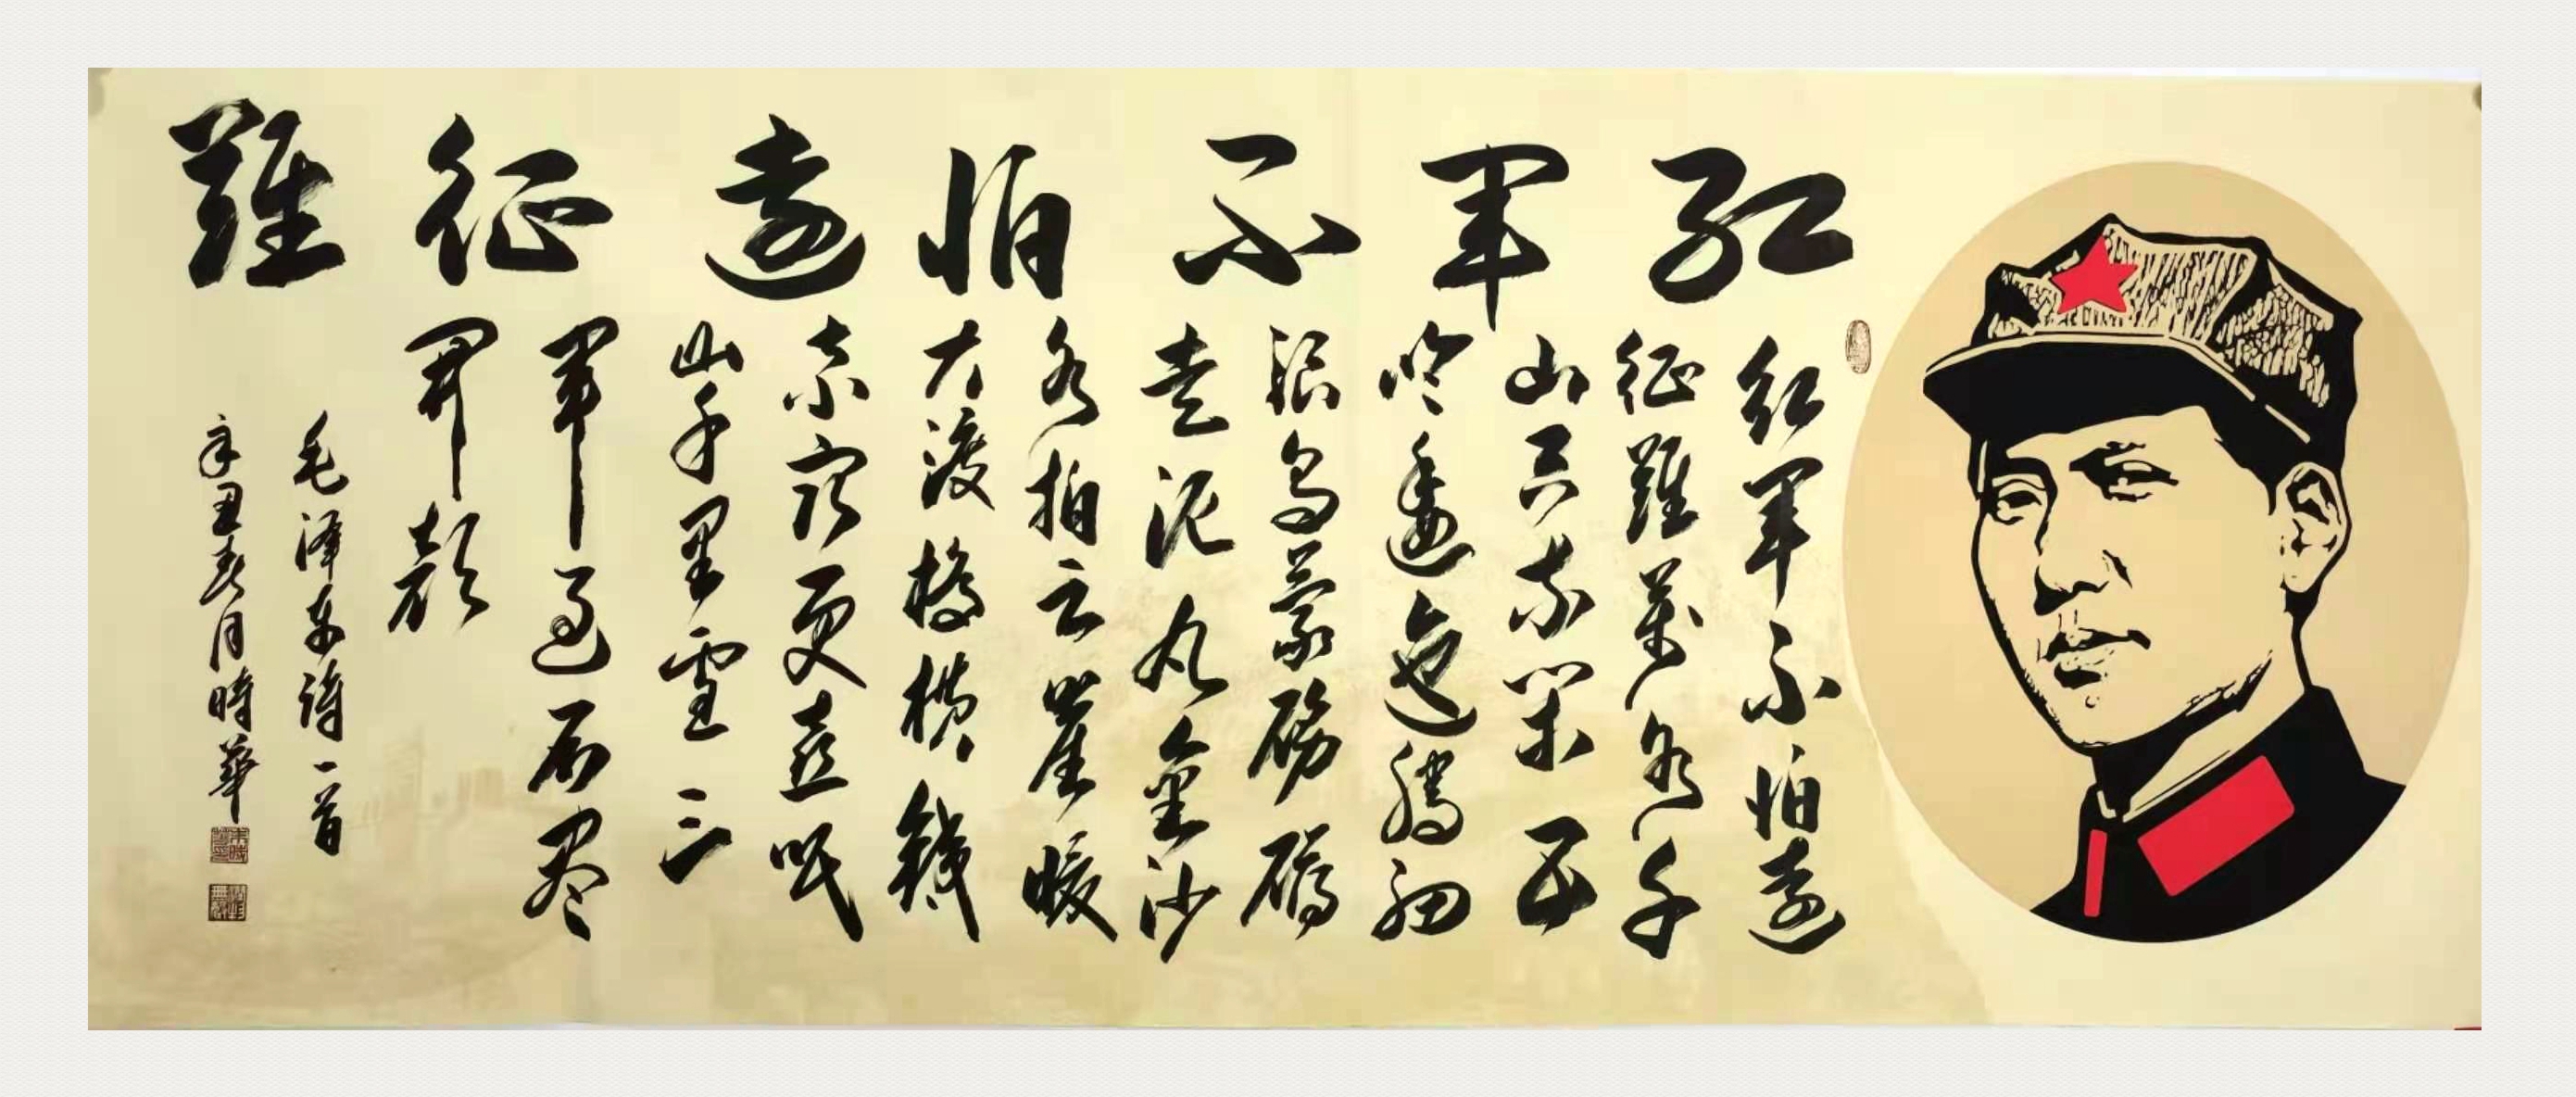 红軍不怕遠征難
红軍不怕遠
征難萬水千
山只等閑五
岭逶迤腾细
浪乌蒙磅礴
走泥丸金沙
水拍云崖暖
大渡橋横鐵
索寒更喜岷
山千里雪三
軍过后尽
開颜
毛泽东诗一首
辛丑春月時華